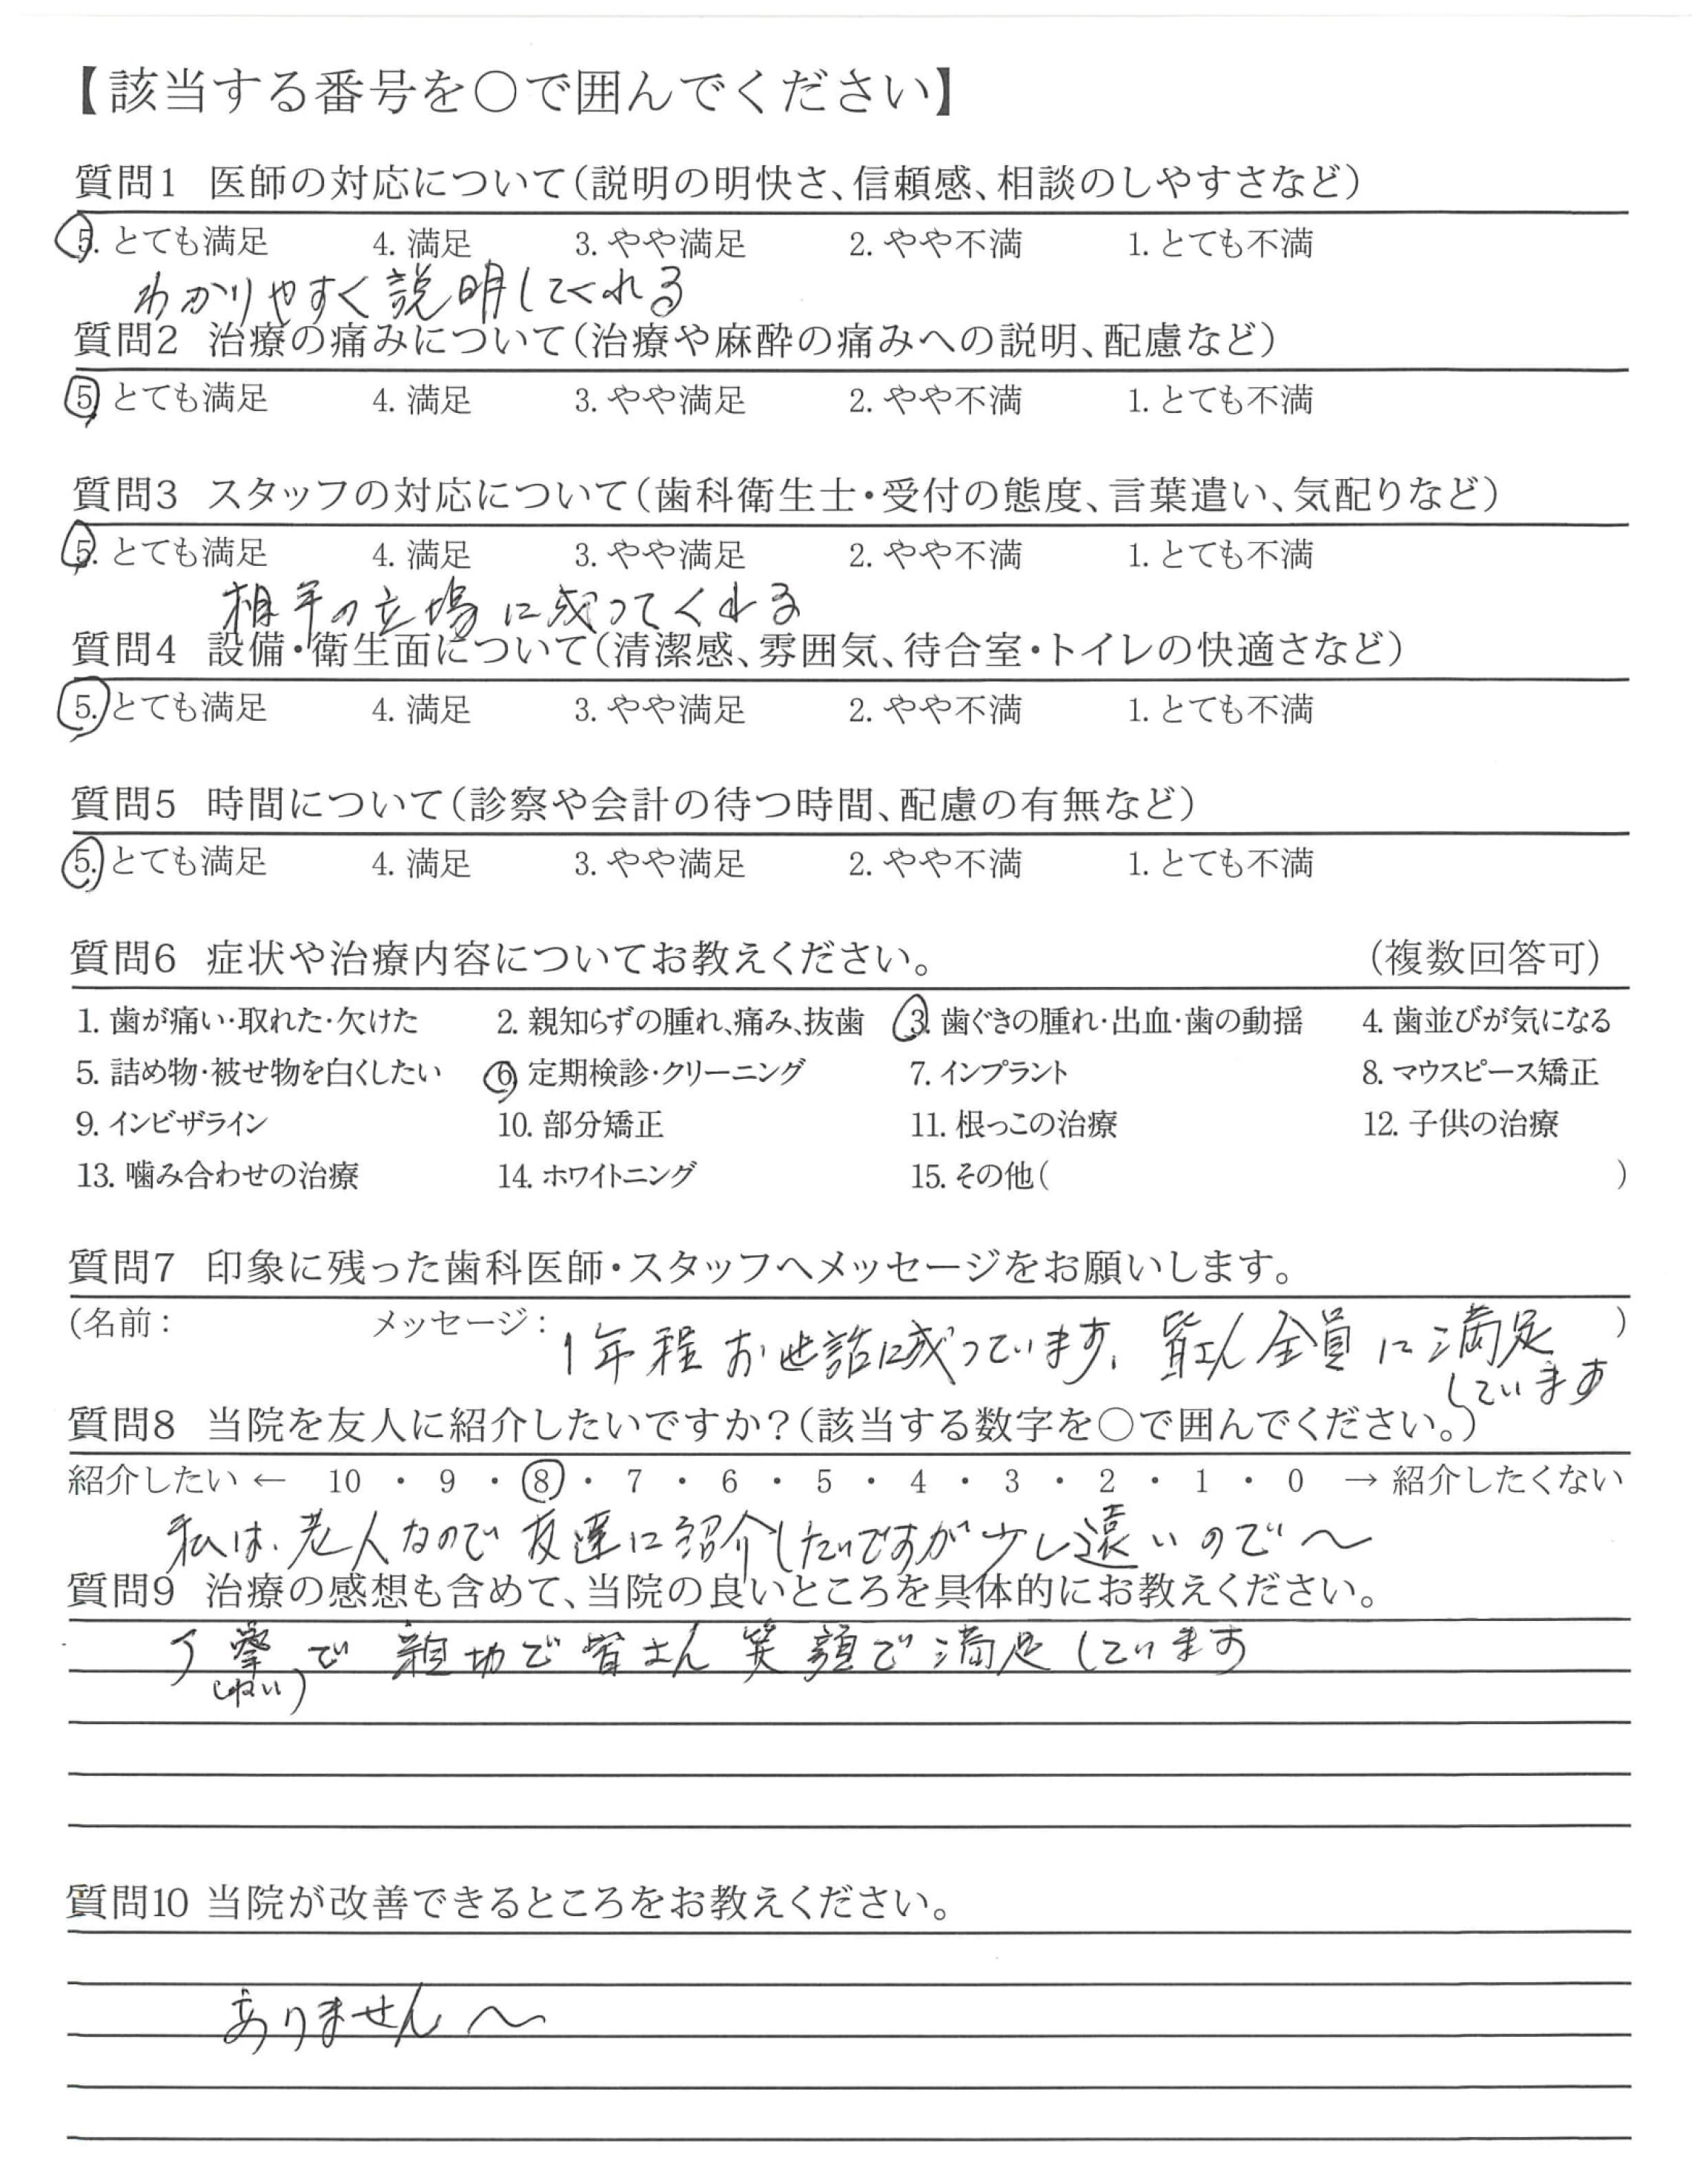 【該当する番号を○で囲んでください】
質問1 医師の対応について(説明の明快さ、信頼感、相談のしやすさなど)
5. とても満足 4. 満足 3. やや満足 2. やや不満 1. とても不満
わかりやすく説明してくれる
質問2 治療の痛みについて(治療や麻酔の痛みへの説明、配慮など)
5. とても満足 4. 満足 3. やや満足 2. やや不満 1. とても不満
質問3 スタッフの対応について(歯科衛生士・受付の態度、言葉遣い、気配りなど)
5. とても満足 4. 満足 3. やや満足 2. やや不満 1. とても不満
相手の立場に成ってくれる
質問4 設備・衛生面について(清潔感、雰囲気、待合室・トイレの快適さなど)
5. とても満足 4. 満足 3. やや満足 2. やや不満 1. とても不満
質問5 時間について(診察や会計の待つ時間、配慮の有無など)
5. とても満足 4. 満足 3. やや満足 2. やや不満 1. とても不満
質問6 症状や治療内容についてお教えください。 (複数回答可)
1. 歯が痛い・取れた・欠けた 2. 親知らずの腫れ、痛み、抜歯 3. 歯ぐきの腫れ・出血・歯の動揺 4. 歯並びが気になる
5. 詰め物・被せ物を白くしたい 6. 定期検診・クリーニング 7. インプラント 8. マウスピース矯正
9. インビザライン 10. 部分矯正 11. 根っこの治療 12. 子供の治療
13. 噛み合わせの治療 14. ホワイトニング 15. その他( )
質問7 印象に残った歯科医師・スタッフへメッセージをお願いします。
(名前: メッセージ: 1年程お世話に成っています。皆さん全員に満足 )
しています
質問8 当院を友人に紹介したいですか?(該当する数字を○で囲んでください。)
紹介したい ← 10 ・ 9 ・ 8 ・ 7 ・ 6 ・ 5 ・ 4 ・ 3 ・ 2 ・ 1 ・ 0 → 紹介したくない
私は、老人なので友達に紹介したいですが少し遠いので〜
質問9 治療の感想も含めて、当院の良いところを具体的にお教えください。
で親切で皆さん笑顔で満足しています
質問10 当院が改善できるところをお教えください。
ありません〜